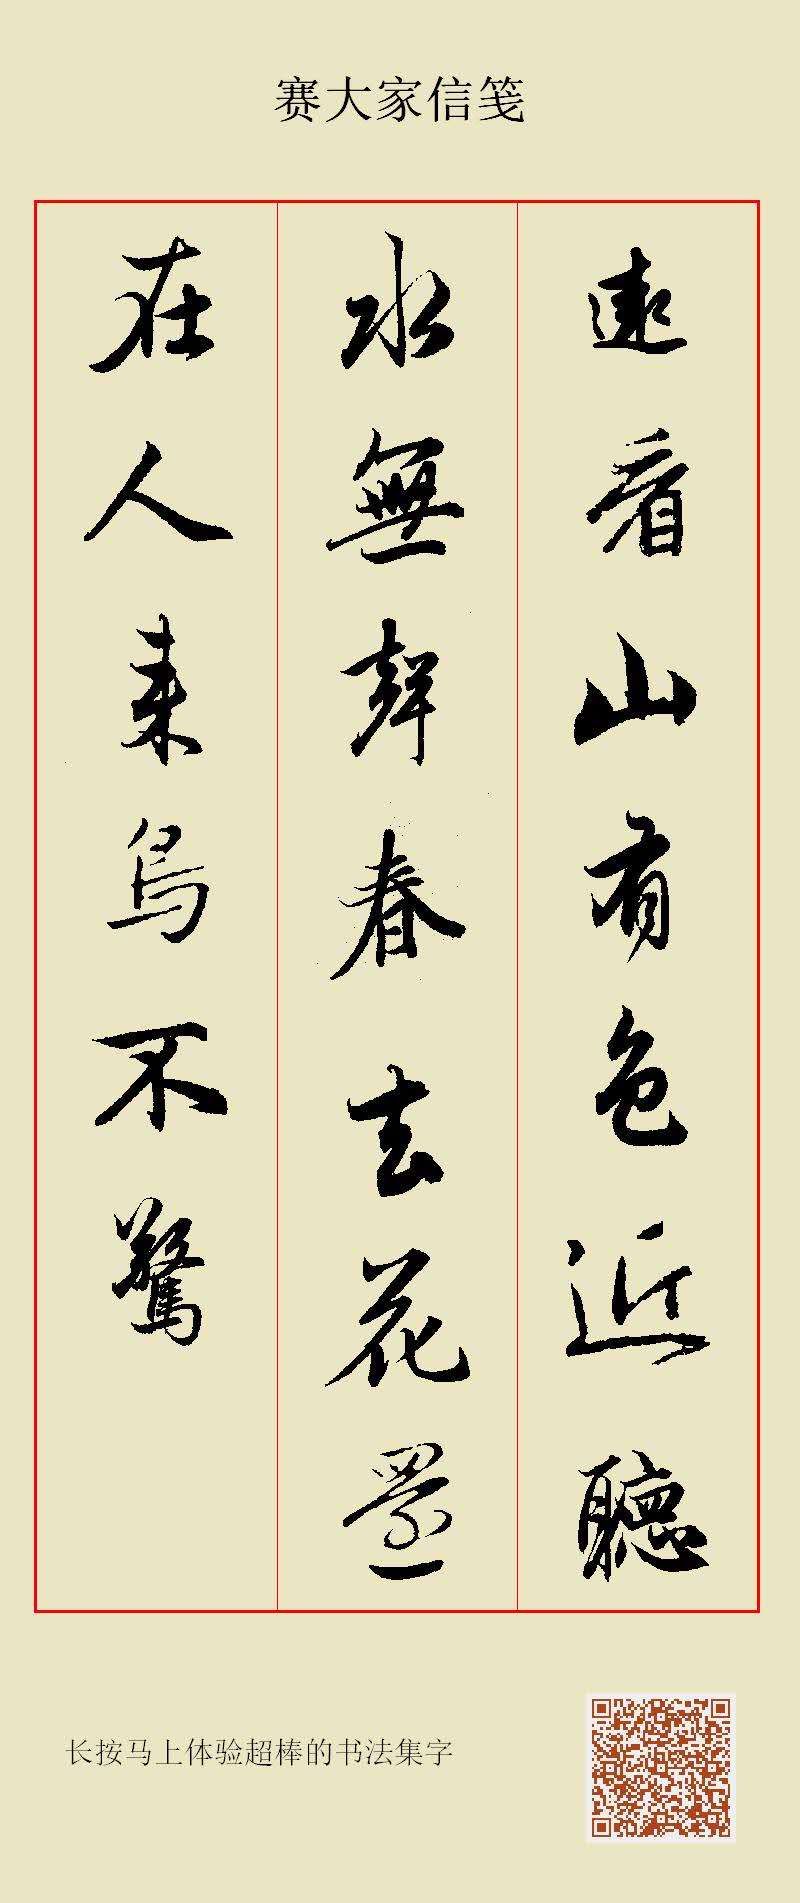 赛大家信笺
遠看山有色近聽
水無聲春去花還
在人來鳥不驚
长按马上体验超棒的书法集字